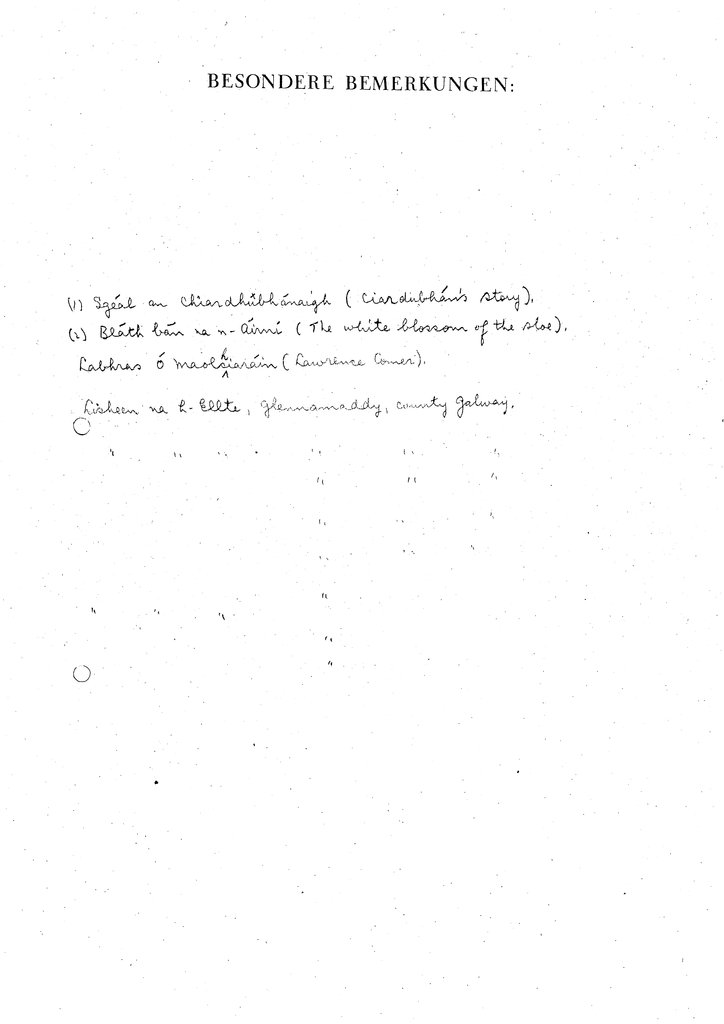 BESONDERE BEMERKUNGEN:
(1) Sgéal an Chiardhúbhánaigh (Ciardubhán's story).
(2) Bláth bán na n-Áirní (The white blossom of the sloe).
Labhras ó Maolchiaráin (Lawrence Comer).
Lisheen na h-Ellte, Glennamaddy, county Galway.
" " " " " "
" " "
" " "
" " "
"
" " "
"
"